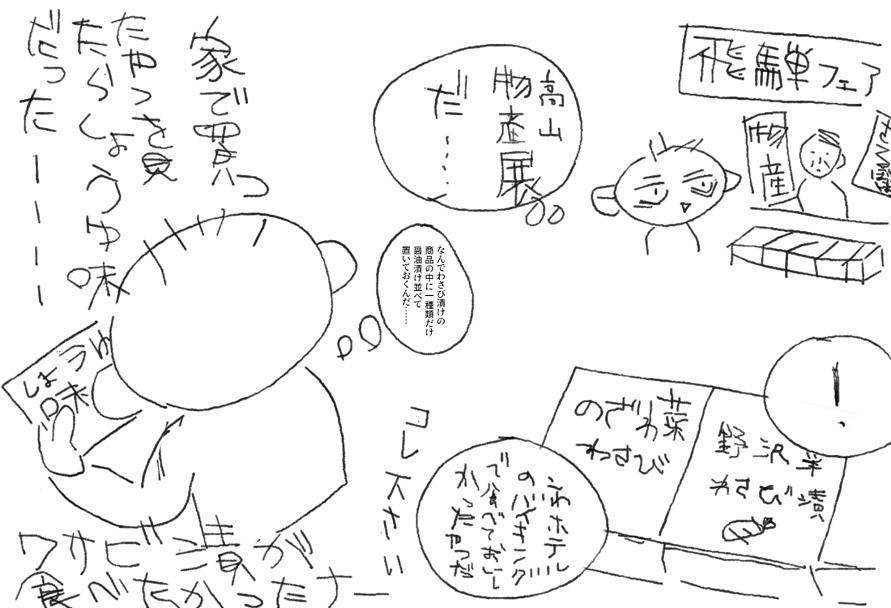 飛騨フェア
物産
高山
物産展
だ……
!
野沢菜漬
わさび
のざわ菜
わさび
ホテル
のバイキング
で食べておいし
かったやつだ
コレ下さい
なんでわさび漬けの
商品の中に一種類だけ
醤油漬け並べて
置いておくんだ……
家で買っ
たやつを見
たらしょうゆ味
だったーーーー
しょうゆ
味
ワサビ漬が
食べたかったさー